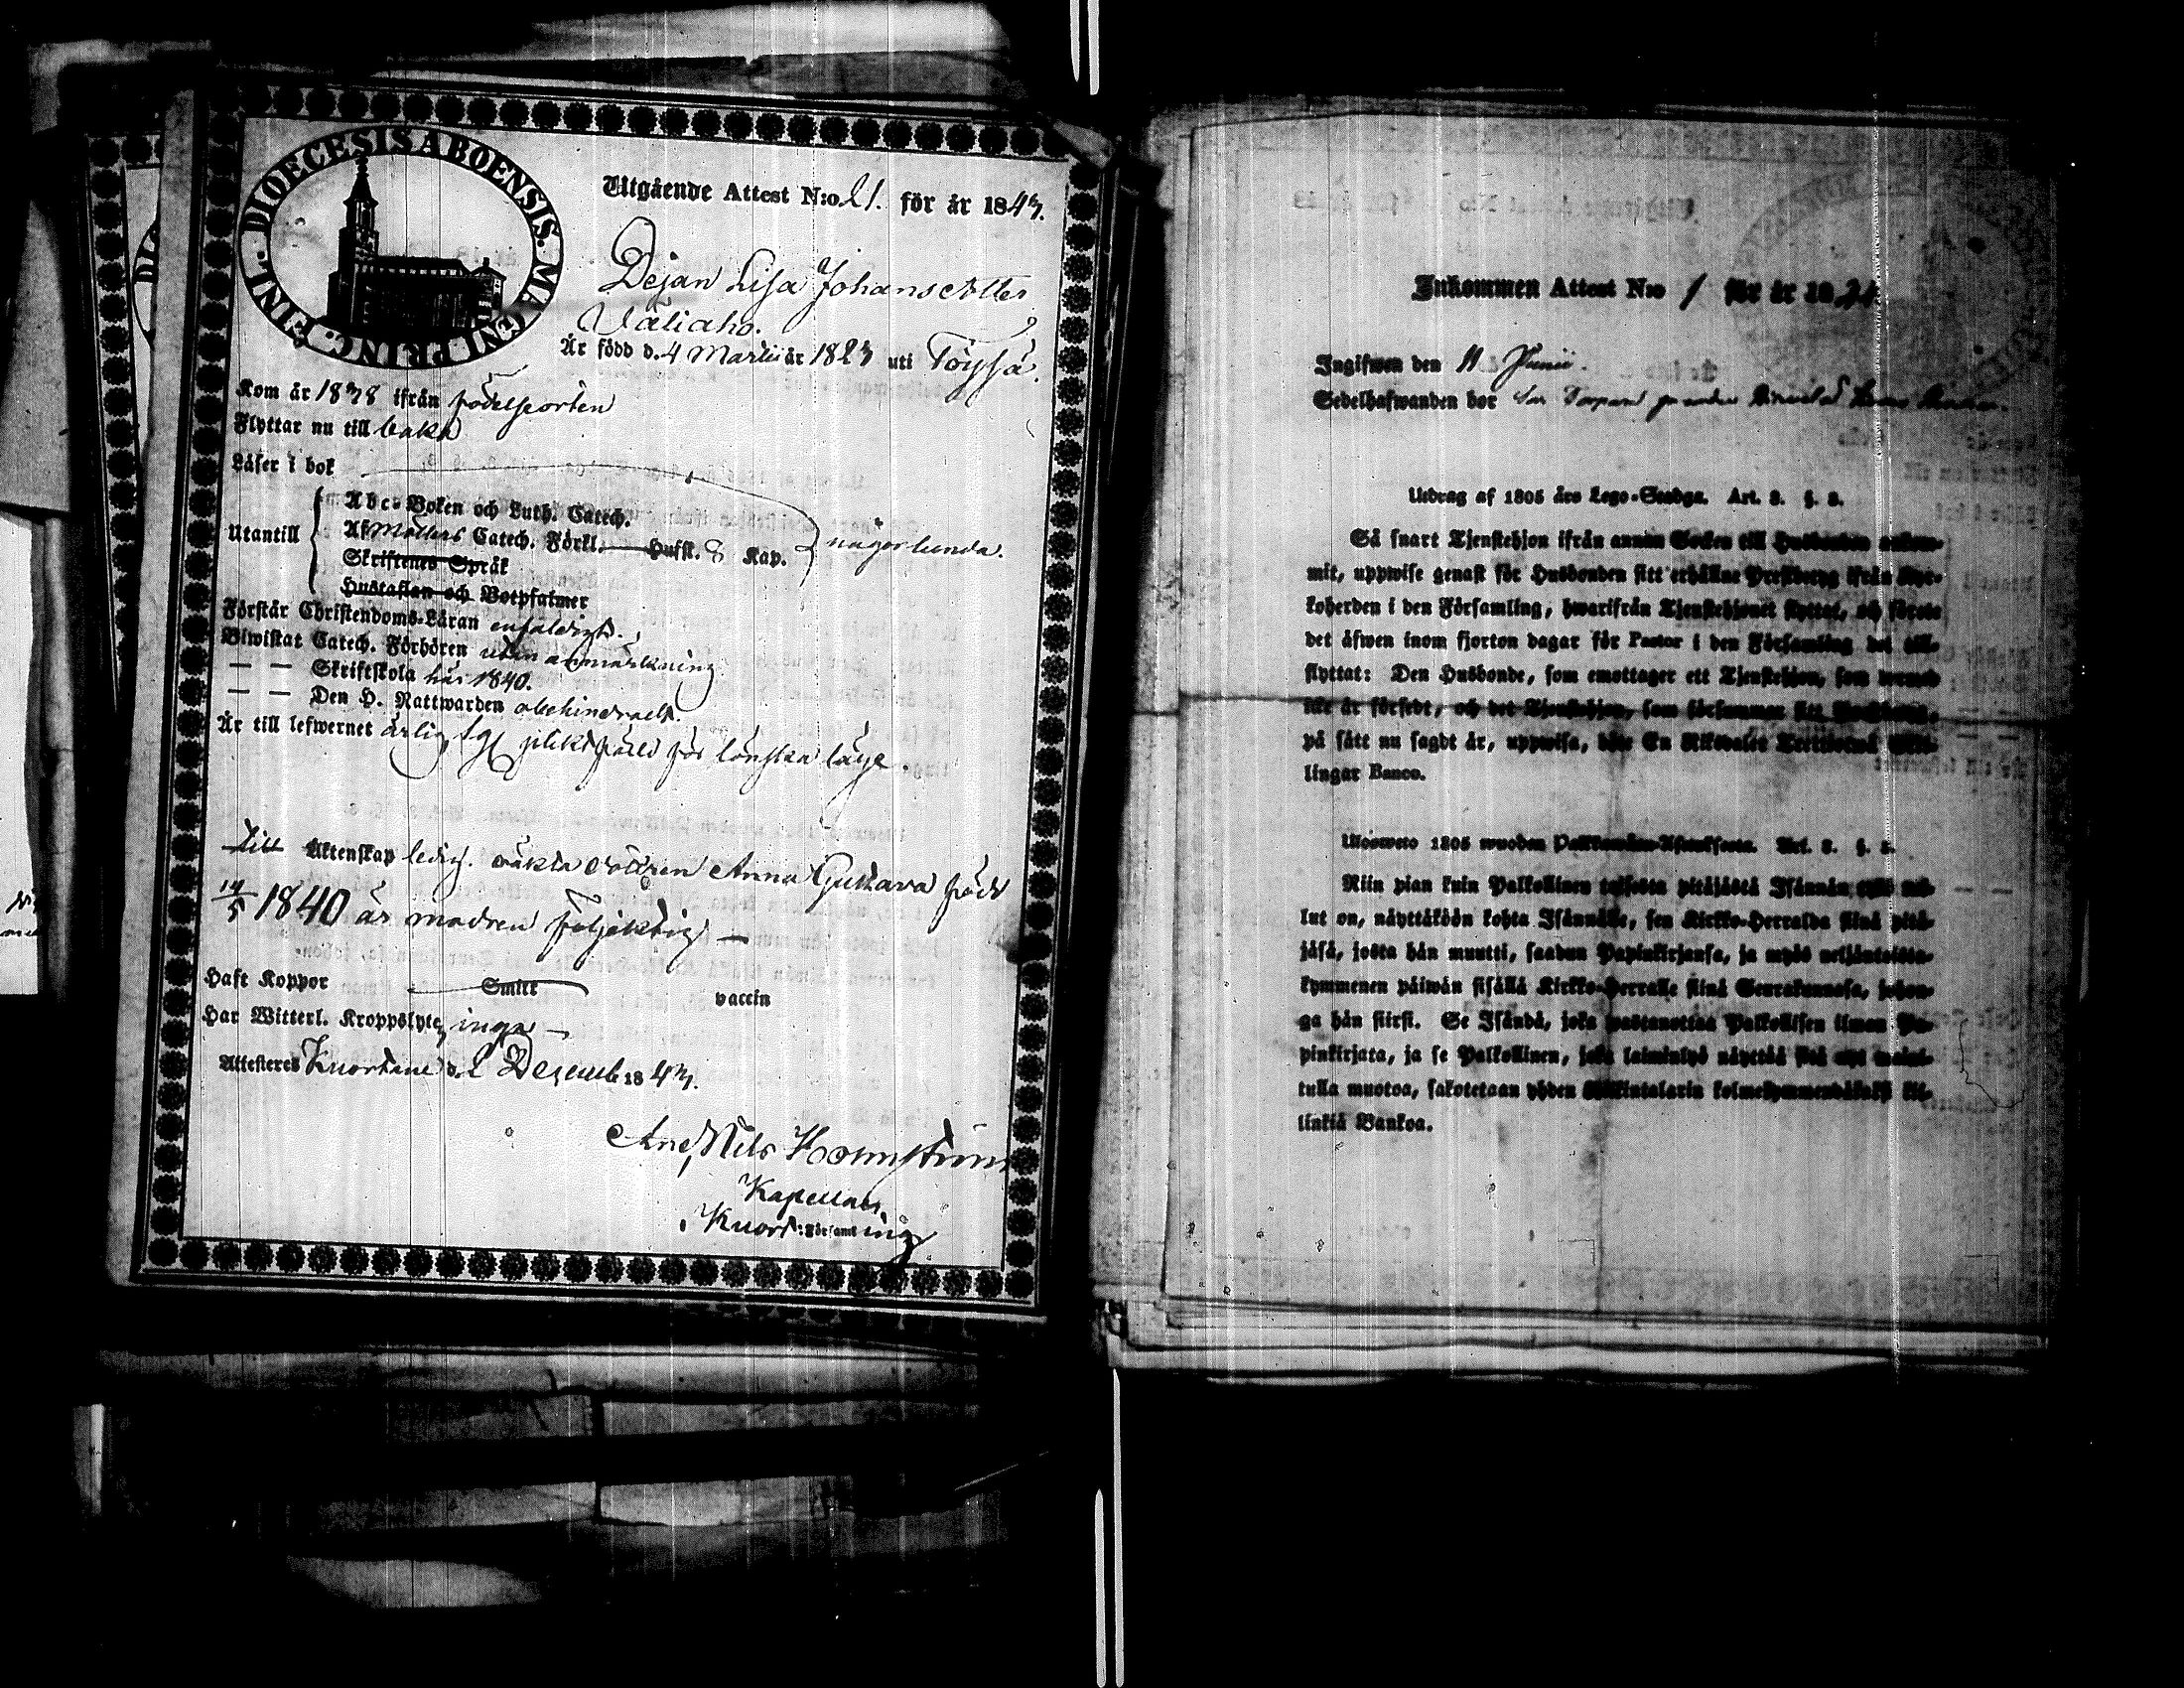 DIOECESIS ABOENSIS. MAGNI PRINC. FINL.
Utgående Attest N:o 21. för år 1843.
Dejan Lisa Johansdotter
Väliaho.
Är född d. 4 Martii år 1823 uti Töysä.
Kom år 1838 ifrån födelseorten
Flyttar nu till baka
Läser i bok
Abc-Boken och Luth. Catech.
Utantill Af Möllers Catech. Förkl. Husft. 8 Kap. någorlunda.
Skriftenes Språk
Hustaflan och Botpsalmer
Förstår Christendoms-Läran enfaldigt.
Biwistat Catech. Förhören utan anmärkning
— — Skriftskola här 1840.
— — Den H. Nattwarden obehindradt.
Är till lefwernet ärlig, plikt för lönska läge.
till Äktenskap ledig. oäkta dottren Anna Gustava född
14/5 1840 är modren följaktig —
Haft Koppor Smitt vaccin
Har Witterl. Kroppslyte, inga —
Attesteres Kuortane d. 2 Decemb 1843.
And, Nils Holmström
Kapellan,
Kuort: Församling
Inkommen Attest N:o 1 för år 18
Ingifwen den 11 Junii.
Sedelhafwanden bor
Utdrag af 1805 års Lego-Stadga. Art. 3. §. 3.
Så snart Tjenstehjon ifrån annan Socken till Husbonden ankom-
mit, uppwise genast för Husbonden sitt erhållne Prestbetyg ifrån Kyr-
koherden i den Församling, hwarifrån Tjenstehjonet flyttat, och förete
det äfwen inom fjorton dagar för Pastor i den Församling det till-
flyttat: Den Husbonde, som emottager ett Tjenstehjon, som dermed
icke är försedt, och det Tjenstehjon, som försummar sitt Prestbetyg,
på sätt nu sagdt är, uppwisa, böte En Riksdaler Trettiotwå Skil-
lingar Banco.
Ulosweto 1805 wuoden Palkkawäen-Asetuksesta. Art. 3. §. 3.
Niin pian kuin Palkollinen toisesta pitäjästä Isännän tykö tul-
lut on, näyttäköön kohta Isännälle, sen Kirkko-Herralda siinä pitä-
jäsä, josta hän muutti, saadun Papinkirjansa, ja myös neljäntoista-
kymmenen päiwän sisällä Kirkko-Herralle siinä Seurakunnasa, johon-
ga hän siirsi. Se Isändä, joka wastanottaa Palkollisen ilman Pa-
pinkirjata, ja se Palkollinen, joka laiminlyö näyttää sitä nyt mainit-
tulla muotoa, sakotetaan yhden Riikintalarin kolmekymmendäkaksi kil-
linkiä Bankoa.